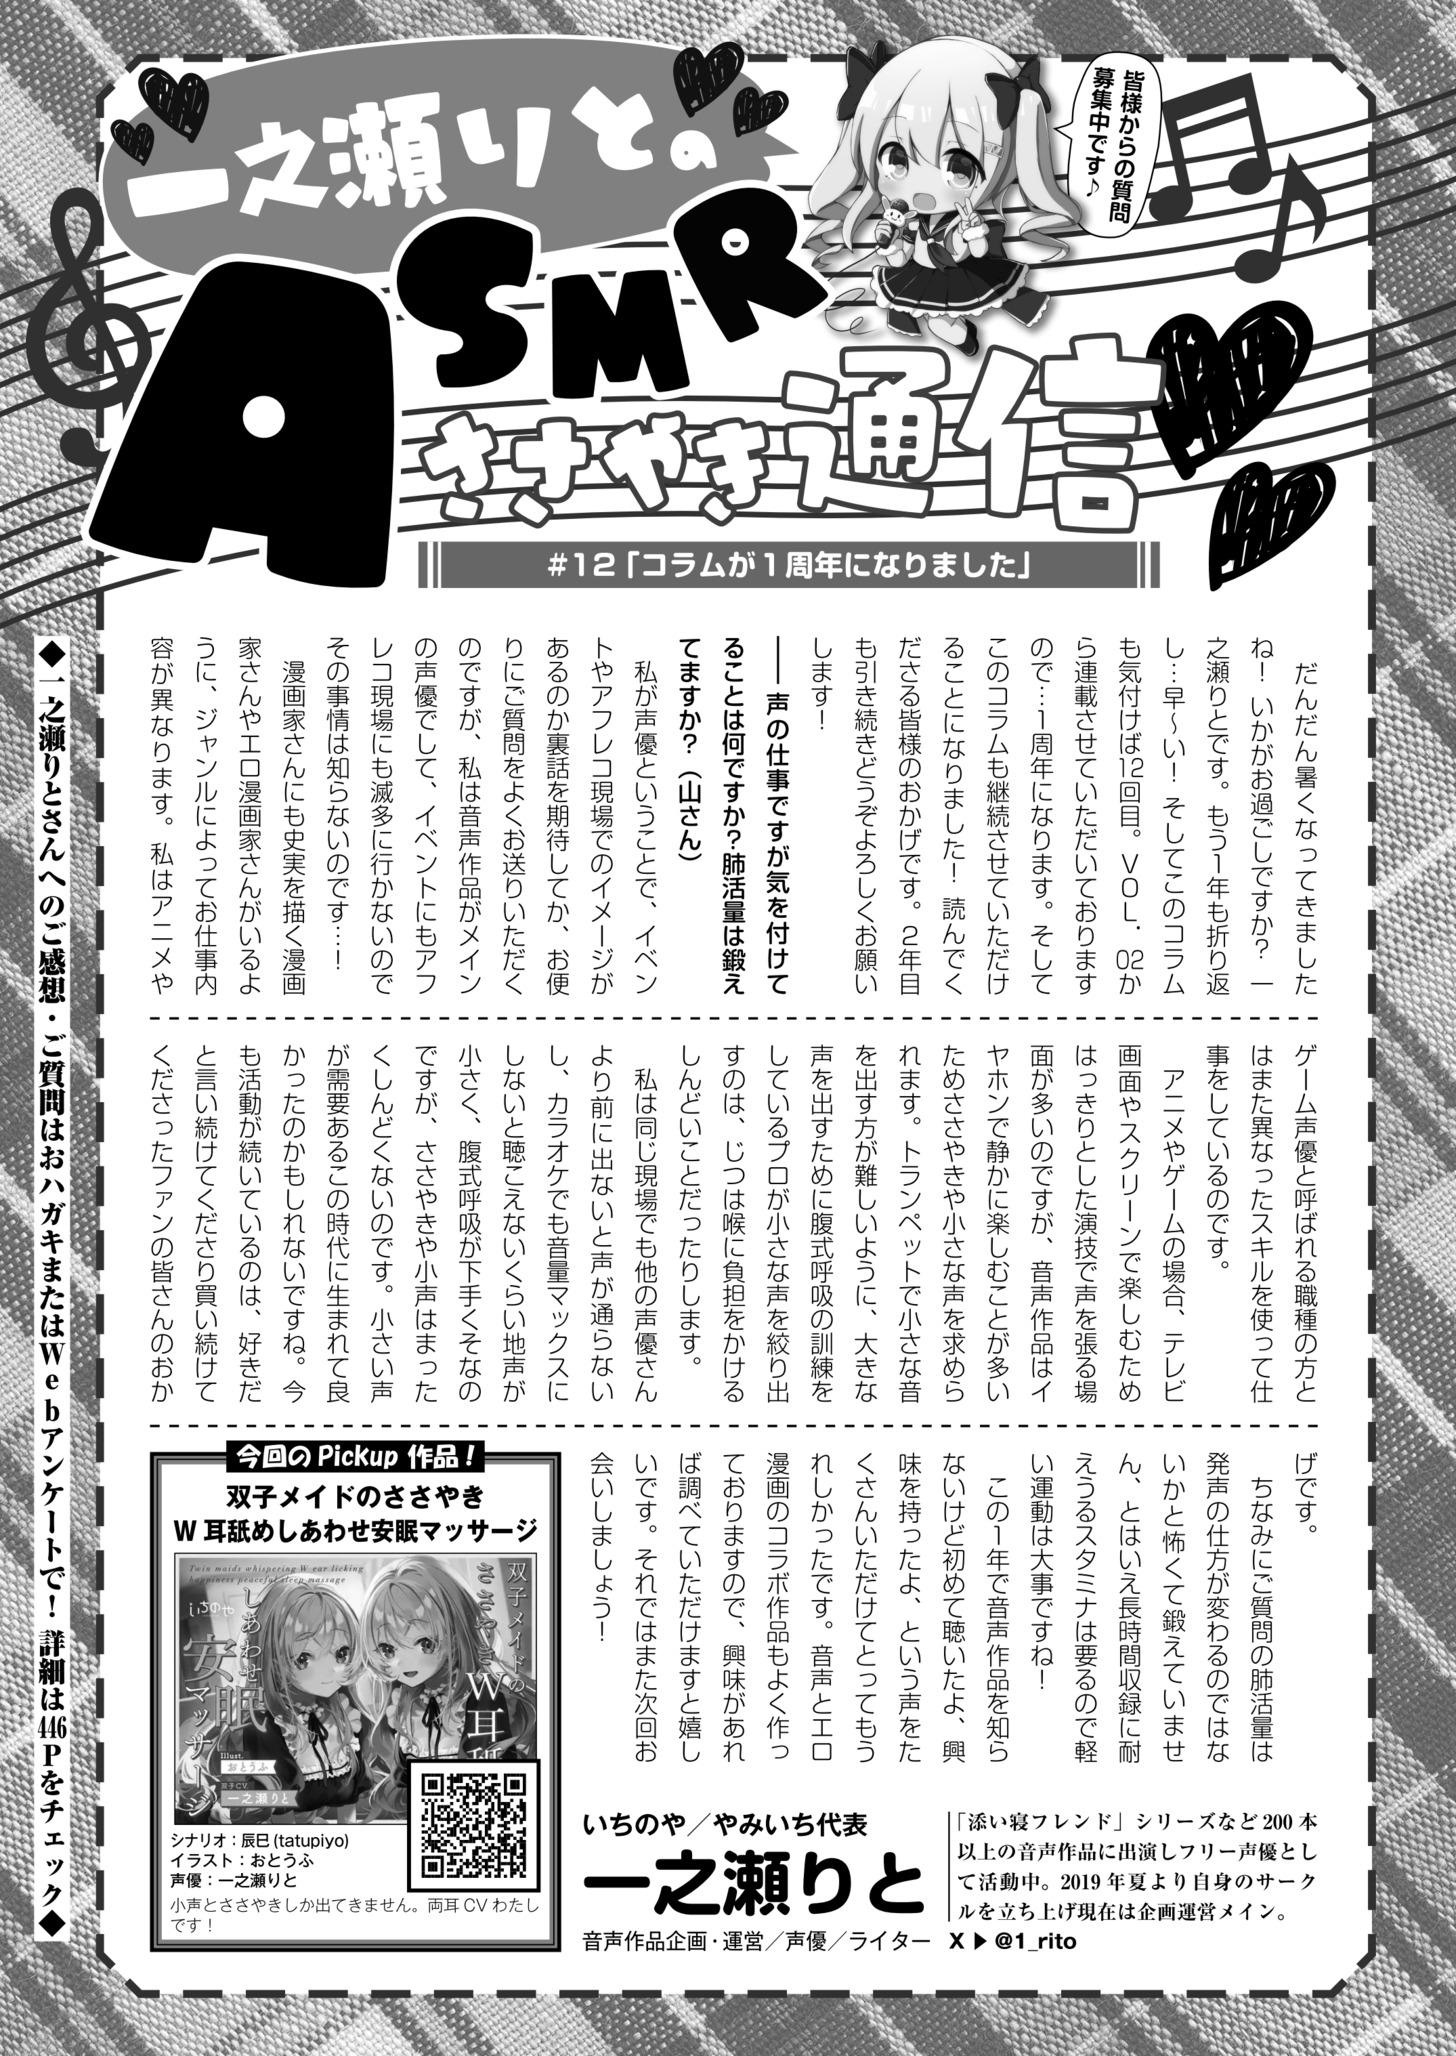 一之瀬りとの
ASMR
ささやき通信
皆様からの質問
募集中です♪
#12「コラムが1周年になりました」
だんだん暑くなってきました
ね！いかがお過ごしですか？　一
之瀬りとです。もう1年も折り返
し…早〜い！そしてこのコラム
も気付けば12回目。VOL.02か
ら連載させていただいております
ので…1周年になります。そして
このコラムも継続させていただけ
ることになりました！読んでく
ださる皆様のおかげです。2年目
も引き続きどうぞよろしくお願い
します！
―― 声の仕事ですが気を付けて
ることは何ですか？肺活量は鍛え
てますか？（山さん）
私が声優ということで、イベン
トやアフレコ現場でのイメージが
あるのか裏話を期待してか、お便
りにご質問をよくお送りいただく
のですが、私は音声作品がメイン
の声優でして、イベントにもアフ
レコ現場にも滅多に行かないので
その事情は知らないのです…！
漫画家さんにも史実を描く漫画
家さんやエロ漫画家さんがいるよ
うに、ジャンルによってお仕事内
容が異なります。私はアニメや
ゲーム声優と呼ばれる職種の方と
はまた異なったスキルを使って仕
事をしているのです。
アニメやゲームの場合、テレビ
画面やスクリーンで楽しむため
はっきりとした演技で声を張る場
面が多いのですが、音声作品はイ
ヤホンで静かに楽しむことが多い
ためささやきや小さな声を求めら
れます。トランペットで小さな音
を出す方が難しいように、大きな
声を出すために腹式呼吸の訓練を
しているプロが小さな声を絞り出
すのは、じつは喉に負担をかける
しんどいことだったりします。
私は同じ現場でも他の声優さん
より前に出ないと声が通らない
し、カラオケでも音量マックスに
しないと聴こえないくらい地声が
小さく、腹式呼吸が下手くそなの
ですが、ささやきや小声はまった
くしんどくないのです。小さい声
が需要あるこの時代に生まれて良
かったのかもしれないですね。今
も活動が続いているのは、好きだ
と言い続けてくださり買い続けて
くださったファンの皆さんのおか
げです。
ちなみにご質問の肺活量は
発声の仕方が変わるのではな
いかと怖くて鍛えていませ
ん、とはいえ長時間収録に耐
えうるスタミナは要るので軽
い運動は大事ですね！
この1年で音声作品を知ら
ないけど初めて聴いたよ、興
味を持ったよ、という声をた
くさんいただけてとってもう
れしかったです。音声とエロ
漫画のコラボ作品もよく作っ
ておりますので、興味があれ
ば調べていただけますと嬉し
いです。それではまた次回お
会いしましょう！
今回のPickup作品！
双子メイドのささやき
W耳舐めしあわせ安眠マッサージ
Twin maids whispering W ear licking
happiness peaceful sleep massage
双子メイドの
ささやきW耳舐
しあわせ
安眠
マッサージ
いちのや
Illust.
おとうふ
双子CV.
一之瀬りと
シナリオ：辰巳(tatupiyo)
イラスト：おとうふ
声優：一之瀬りと
小声とささやきしか出てきません。両耳CVわたし
です！
いちのや／やみいち代表
一之瀬りと
音声作品企画・運営／声優／ライター
「添い寝フレンド」シリーズなど200本
以上の音声作品に出演しフリー声優とし
て活動中。2019年夏より自身のサーク
ルを立ち上げ現在は企画運営メイン。
X▶@1_rito
◆一之瀬りとさんへのご感想・ご質問はおハガキまたはWebアンケートで！ 詳細は446Pをチェック◆